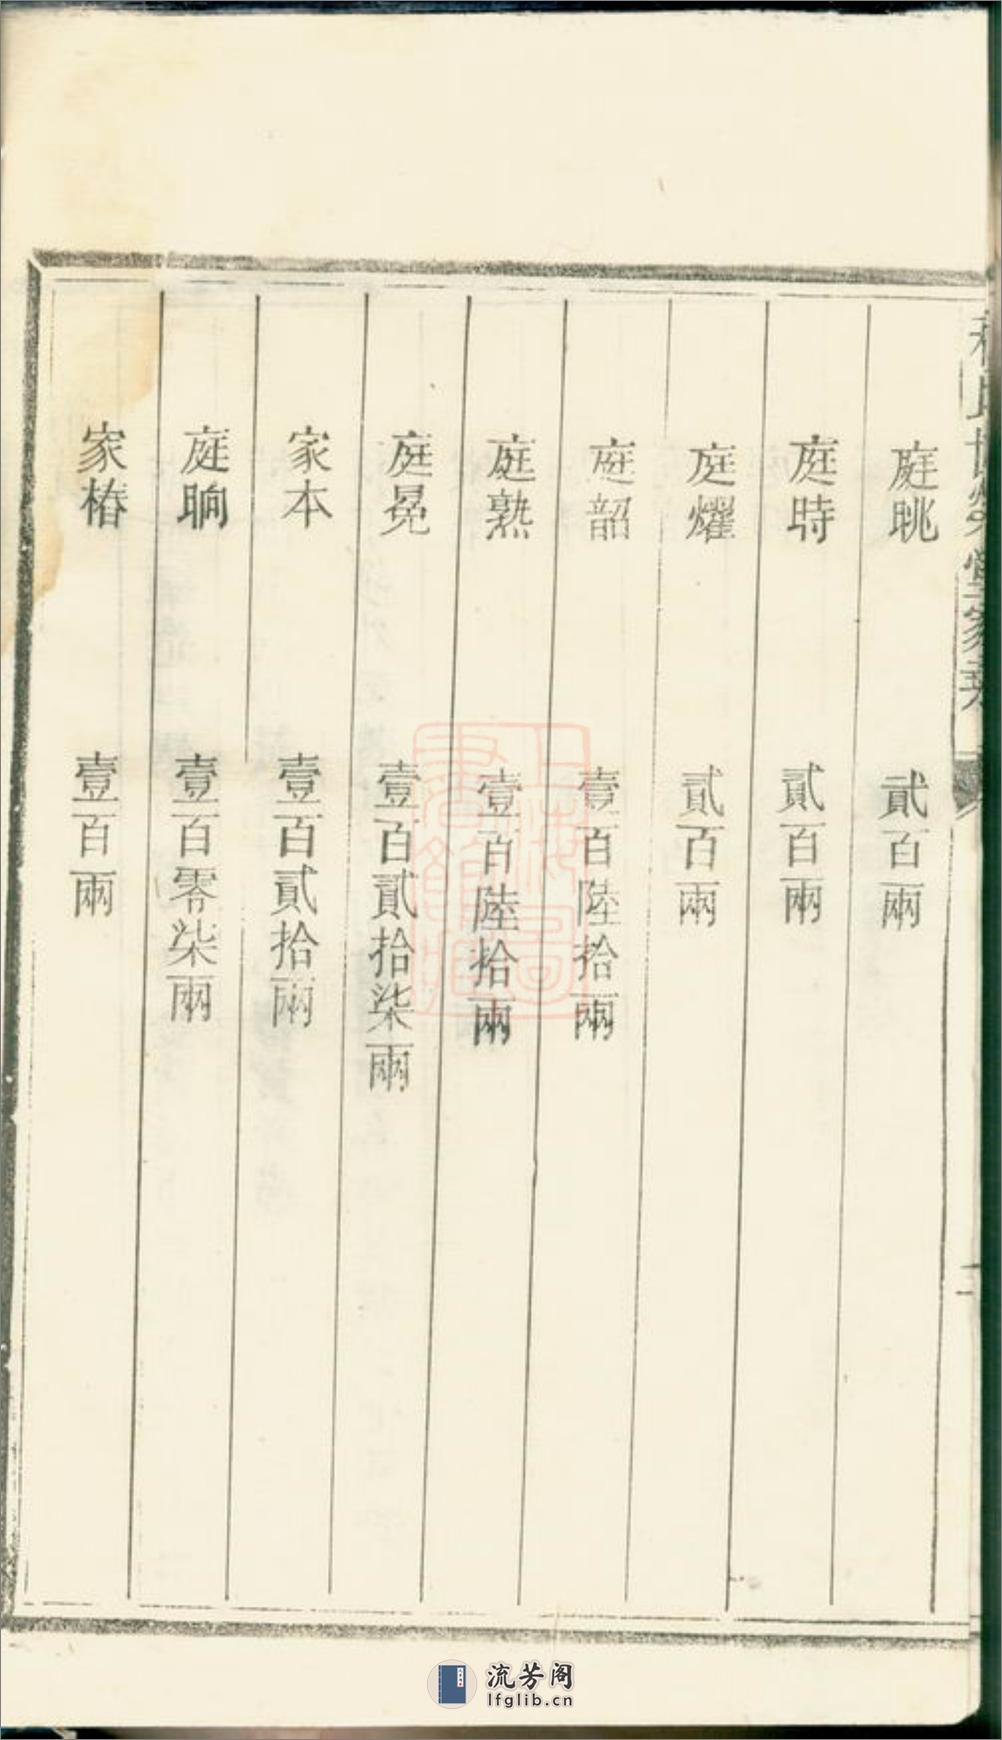 庭眺　貳百兩
庭時　貳百兩
庭燿　貳百兩
庭韶　壹百陸拾兩
庭熟　壹百陸拾兩
庭冕　壹百貳拾柒兩
家本　壹百貳拾兩
庭晌　壹百零柒兩
家椿　壹百兩
流芳阁
lfglib.cn